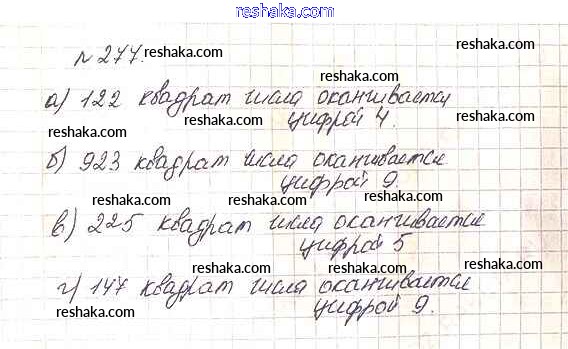 reshaka.com
№ 277. reshaka.com
reshaka.com
а) 122 квадрат числа оканчивается
reshaka.com цифрой 4. reshaka.com
reshaka.com
б) 923 квадрат числа оканчивается
цифрой 9.
reshaka.com reshaka.com
в) 225 квадрат числа оканчивается
цифрой 5
reshaka.com reshaka.com
reshaka.com reshaka.com
г) 147 квадрат числа оканчивается
цифрой 9.
reshaka.com reshaka.com